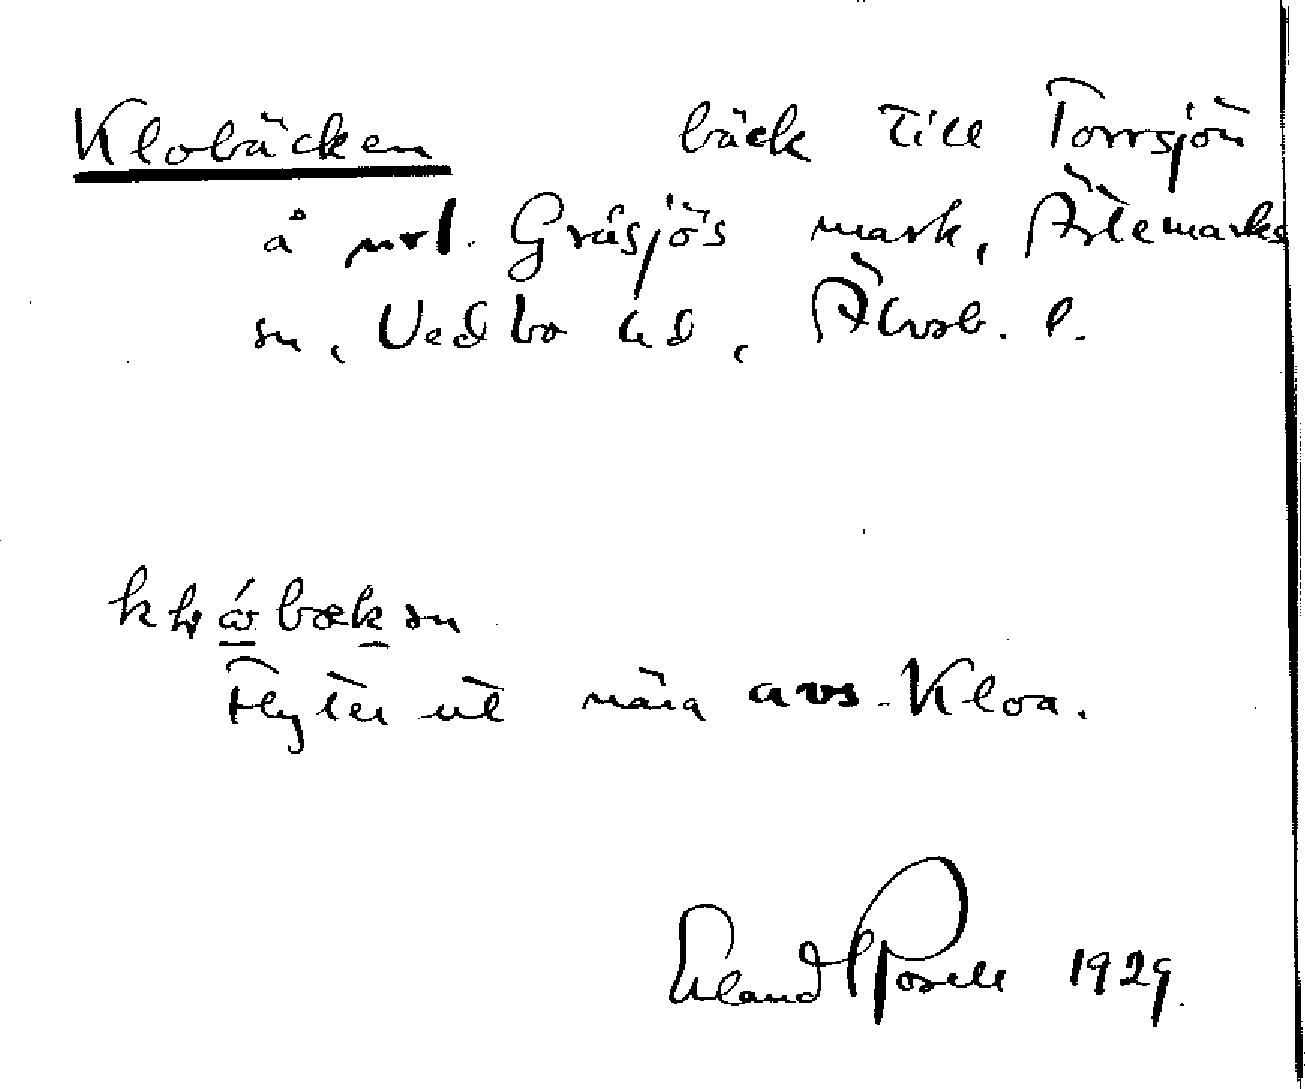 Klobäcken bäck till Torrsjön
å nrl. Gräsjös mark, Ärtemarks
sn, Vedbo hd, Älvsb. l.
Flyter ut nära avs. Kloa.
Erland Rosell 1929.